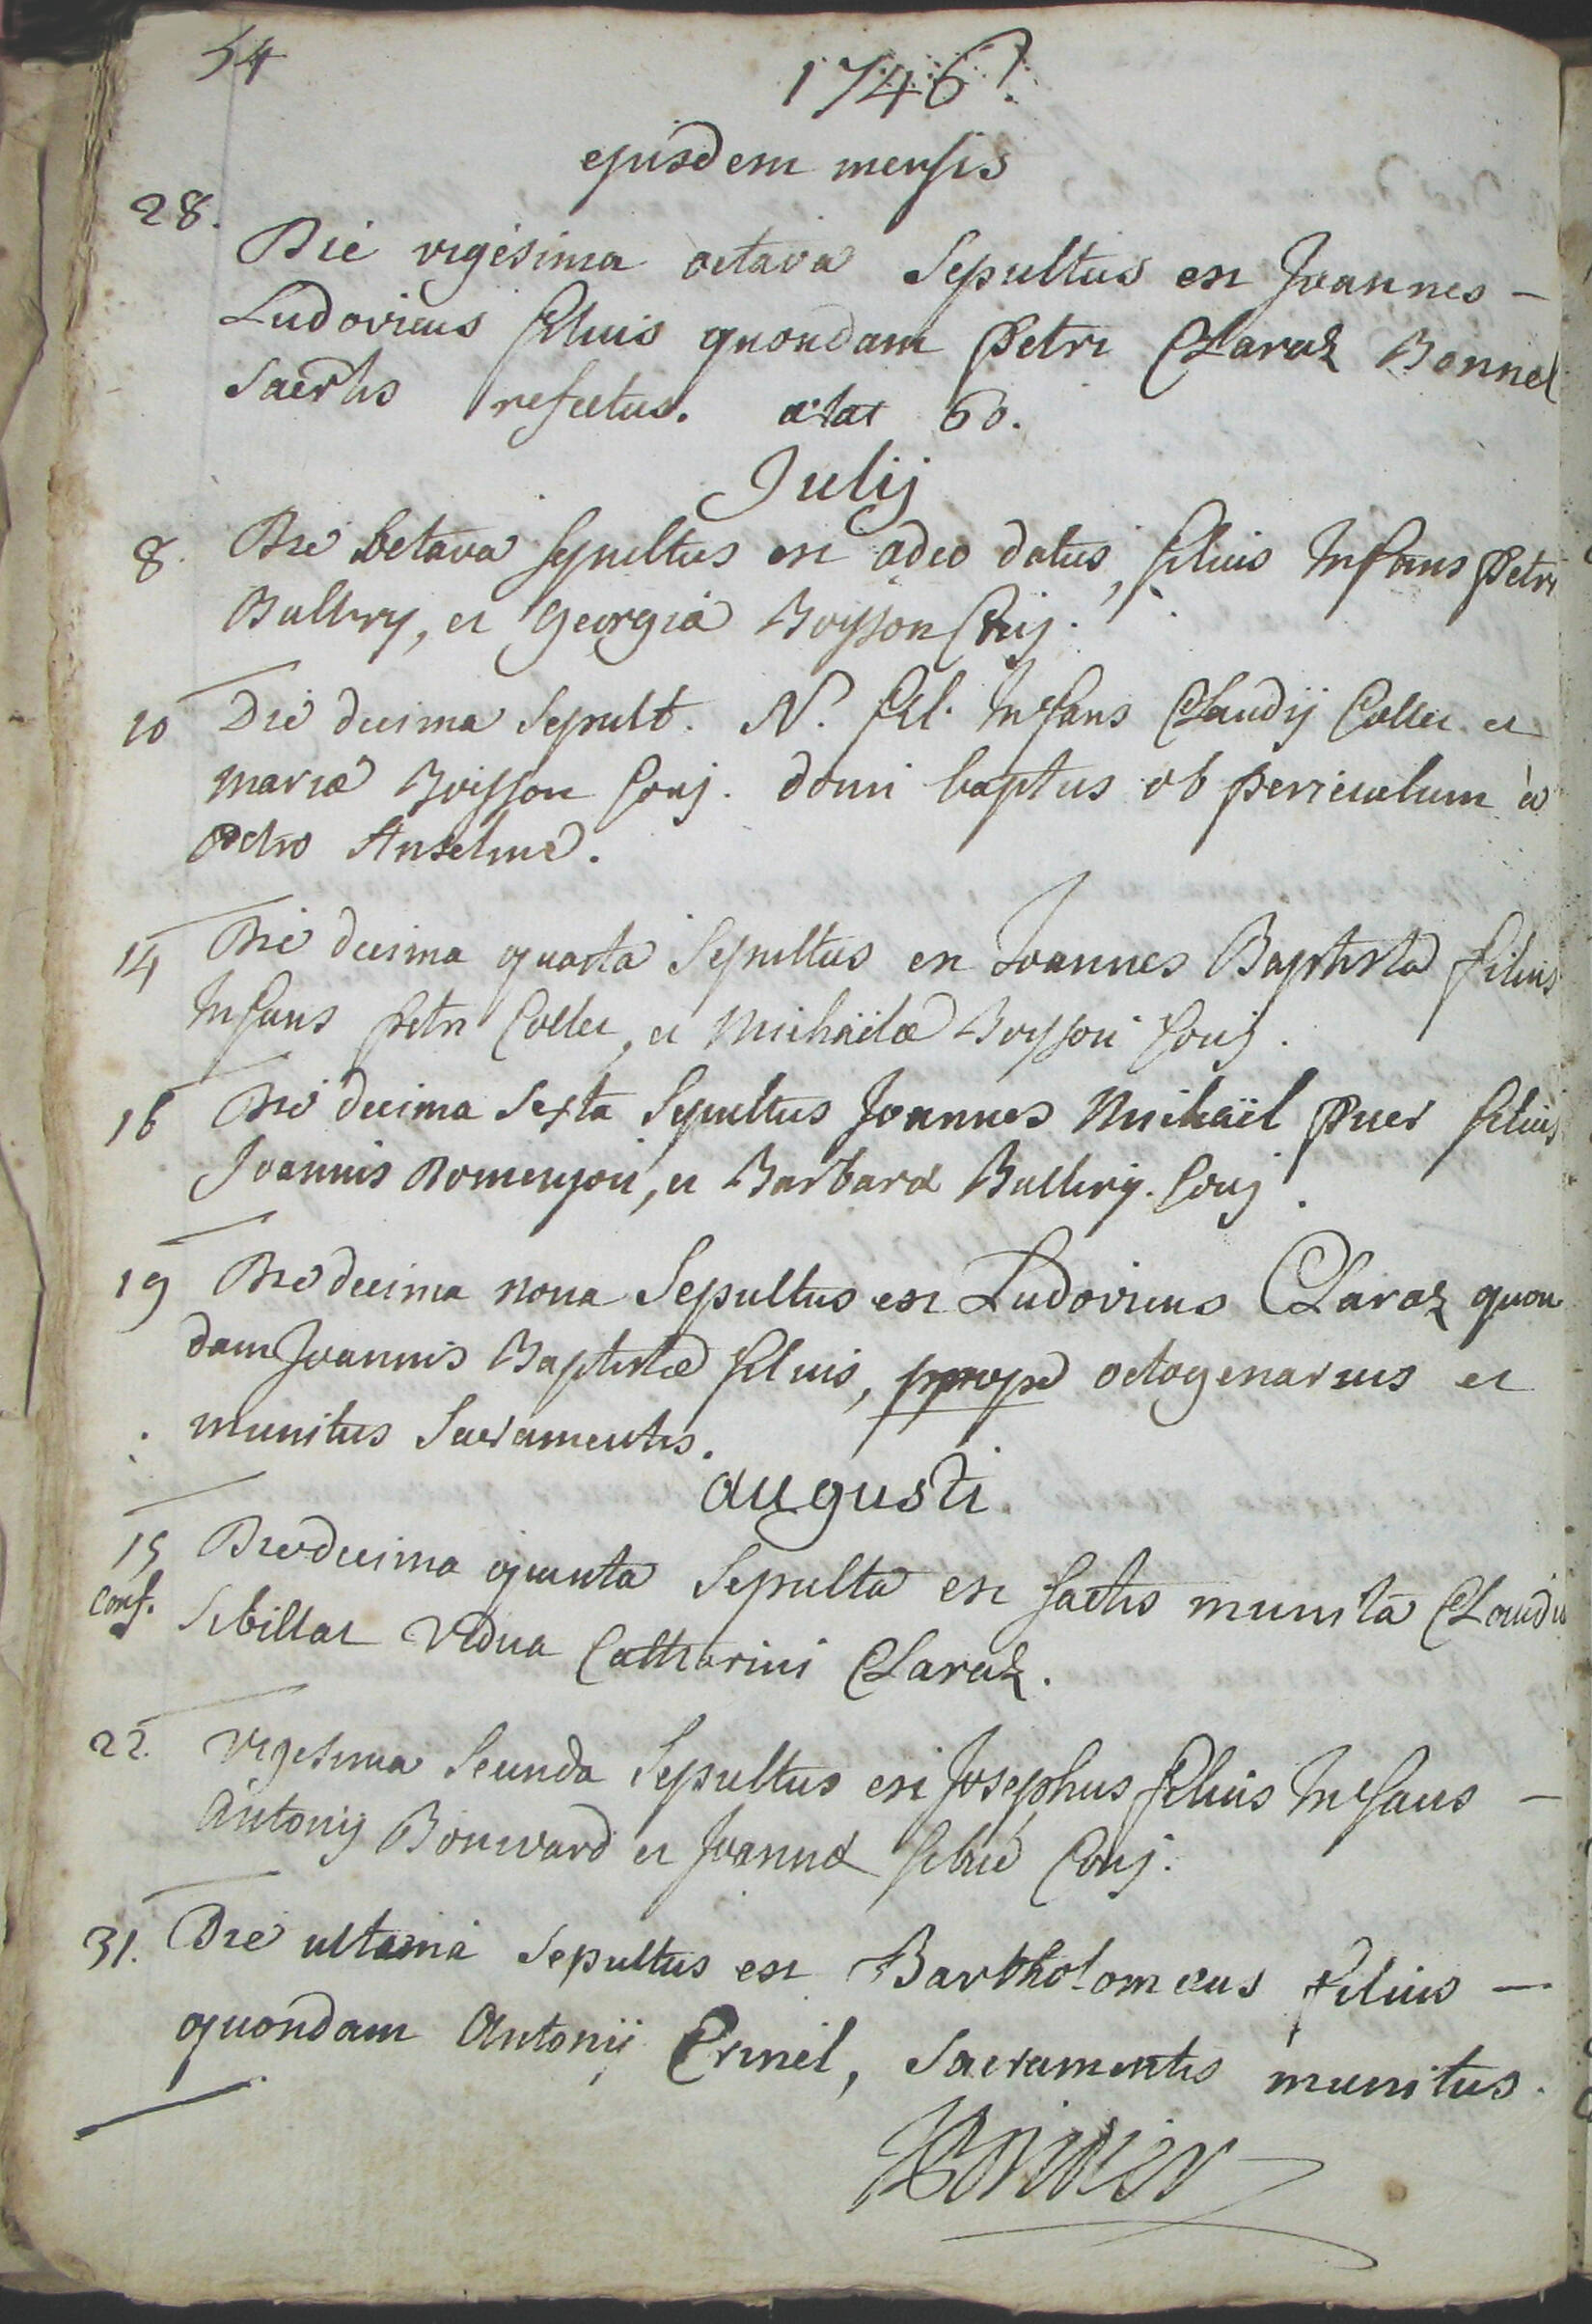 54
1746.
ejusdem mensis
28.
Die vigésima octava Sepultus est Joannes -
Ludovicus filius quondam Petri Claraz Bonnel
Sacrtis refectus. ætat 60.
Julij
8. Die octava sepultus est adeo datus, filius Infans Petri
Bullery, et Georgiæ Boysson Conj.
10 Die decima Sepult. N. fil. Infans Claudij Collet et
mariæ Boisson Conj. domi baptus ob perriculum à
Petro Anselme.
14 Die decima quarta Sepultus est Joannes Baptista filius
Infans Petri Collet, et Michaëlæ Boysson Conj.
16 Die decima Sexta Sepultus Joannes Michaël Puer filius
Joannis Domenjou, et Barbaræ Bullery. Conj.
19 Die decima nona Sepultus est Ludovicus Claraz quon
dam Joannis Baptistæ filius, prope octogenarius et
munitus Sacramentis.
augusti
15 Die decima quinta Sepulta est Sactis munita Claudia
conf. Sibillat Vidua Catharini Claraz.
22. Vigesima Secunda Sepultus est Josephus filius Infans -
Antonij Bouvard et Joannæ Conj.
31. Die ultima Sepultus est Bartholomeus filius -
quondam Antonij Crinel, Sacramentis munitus.